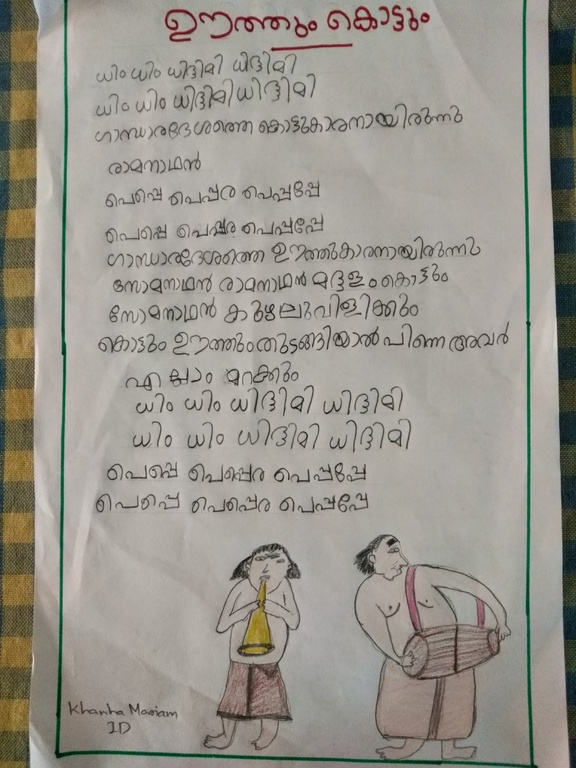 ഊത്തും കൊട്ടും
ധിം ധിം ധിദ്ദിമി ധിദ്ദിമി
ധിം ധിം ധിദ്ദിമി ധിദ്ദിമി
ഗാന്ധാരദേശത്തെ കൊട്ടുകാരനായിരുന്നു
രാമനാഥൻ
പെപ്പെ പെപ്പര പെപ്പപ്പേ
പെപ്പെ പെപ്പര പെപ്പപ്പേ
ഗാന്ധാരദേശത്തെ ഊത്തുകാരനായിരുന്നു
സോമനാഥൻ രാമനാഥൻ മദ്ദളം കൊട്ടും
സോമനാഥൻ കുഴലുവിളിക്കും
കൊട്ടും ഊത്തും തുടങ്ങിയാൽ പിന്നെ അവർ
എല്ലാം മറക്കും
ധിം ധിം ധിദ്ദിമി ധിദ്ദിമി
ധിം ധിം ധിദ്ദിമി ധിദ്ദിമി
പെപ്പെ പെപ്പെര പെപ്പപ്പേ
പെപ്പെ പെപ്പെര പെപ്പപ്പേ
Khanha Mariam
ID